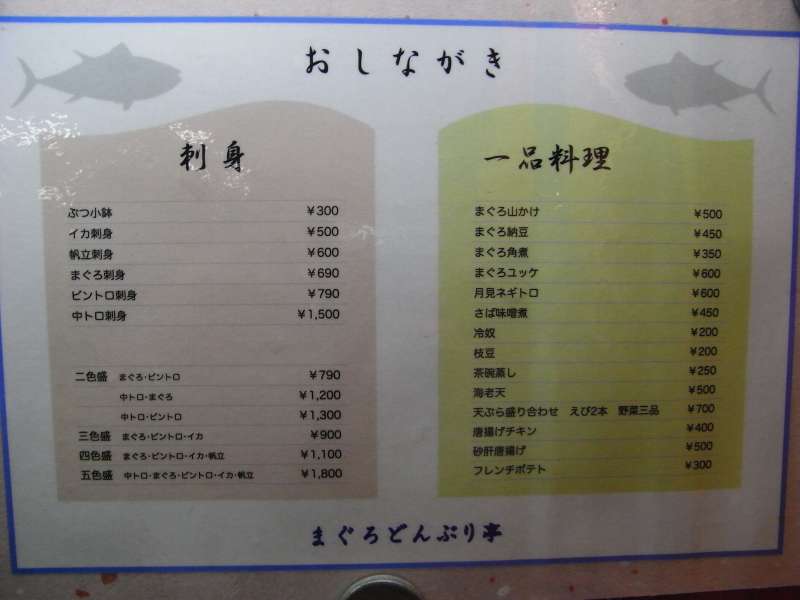 おしながき
刺身
ぶつ小鉢 ¥300
イカ刺身 ¥500
帆立刺身 ¥600
まぐろ刺身 ¥690
ビントロ刺身 ¥790
中トロ刺身 ¥1,500
二色盛 まぐろ・ビントロ ¥790
中トロ・まぐろ ¥1,200
中トロ・ビントロ ¥1,300
三色盛 まぐろ・ビントロ・イカ ¥900
四色盛 まぐろ・ビントロ・イカ・帆立 ¥1,100
五色盛 中トロ・まぐろ・ビントロ・イカ・帆立 ¥1,800
一品料理
まぐろ山かけ ¥500
まぐろ納豆 ¥450
まぐろ角煮 ¥350
まぐろユッケ ¥600
月見ネギトロ ¥600
さば味噌煮 ¥450
冷奴 ¥200
枝豆 ¥200
茶碗蒸し ¥250
海老天 ¥500
天ぷら盛り合わせ えび2本 野菜三品 ¥700
唐揚げチキン ¥400
砂肝唐揚げ ¥500
フレンチポテト ¥300
まぐろどんぶり亭